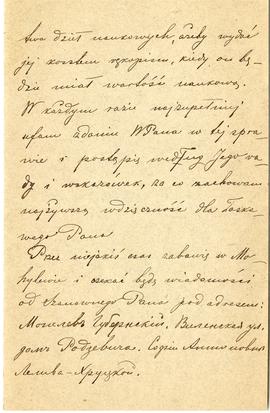 twa dzieł naukowych, ażeby wydać
jej kosztem rękopism, kiedy on bę-
dzie miał wartość naukową.
W każdym razie najzupełniej
ufam zdaniu WPana w tej spra-
wie i postąpię według Jego ra-
dy i wskazówek, za co zachowam
najżywszą wdzięczność dla Łaska-
wego Pana
Przez niejakiś czas zabawię w Mo-
hylewie i czekać będę wiadomości
od Szanownego Pana pod adresem:
Могилевъ Губернскій, Виленская ул.
домъ Родзевича. Софіи Антоновнѣ
Лельва-Хруцкой.